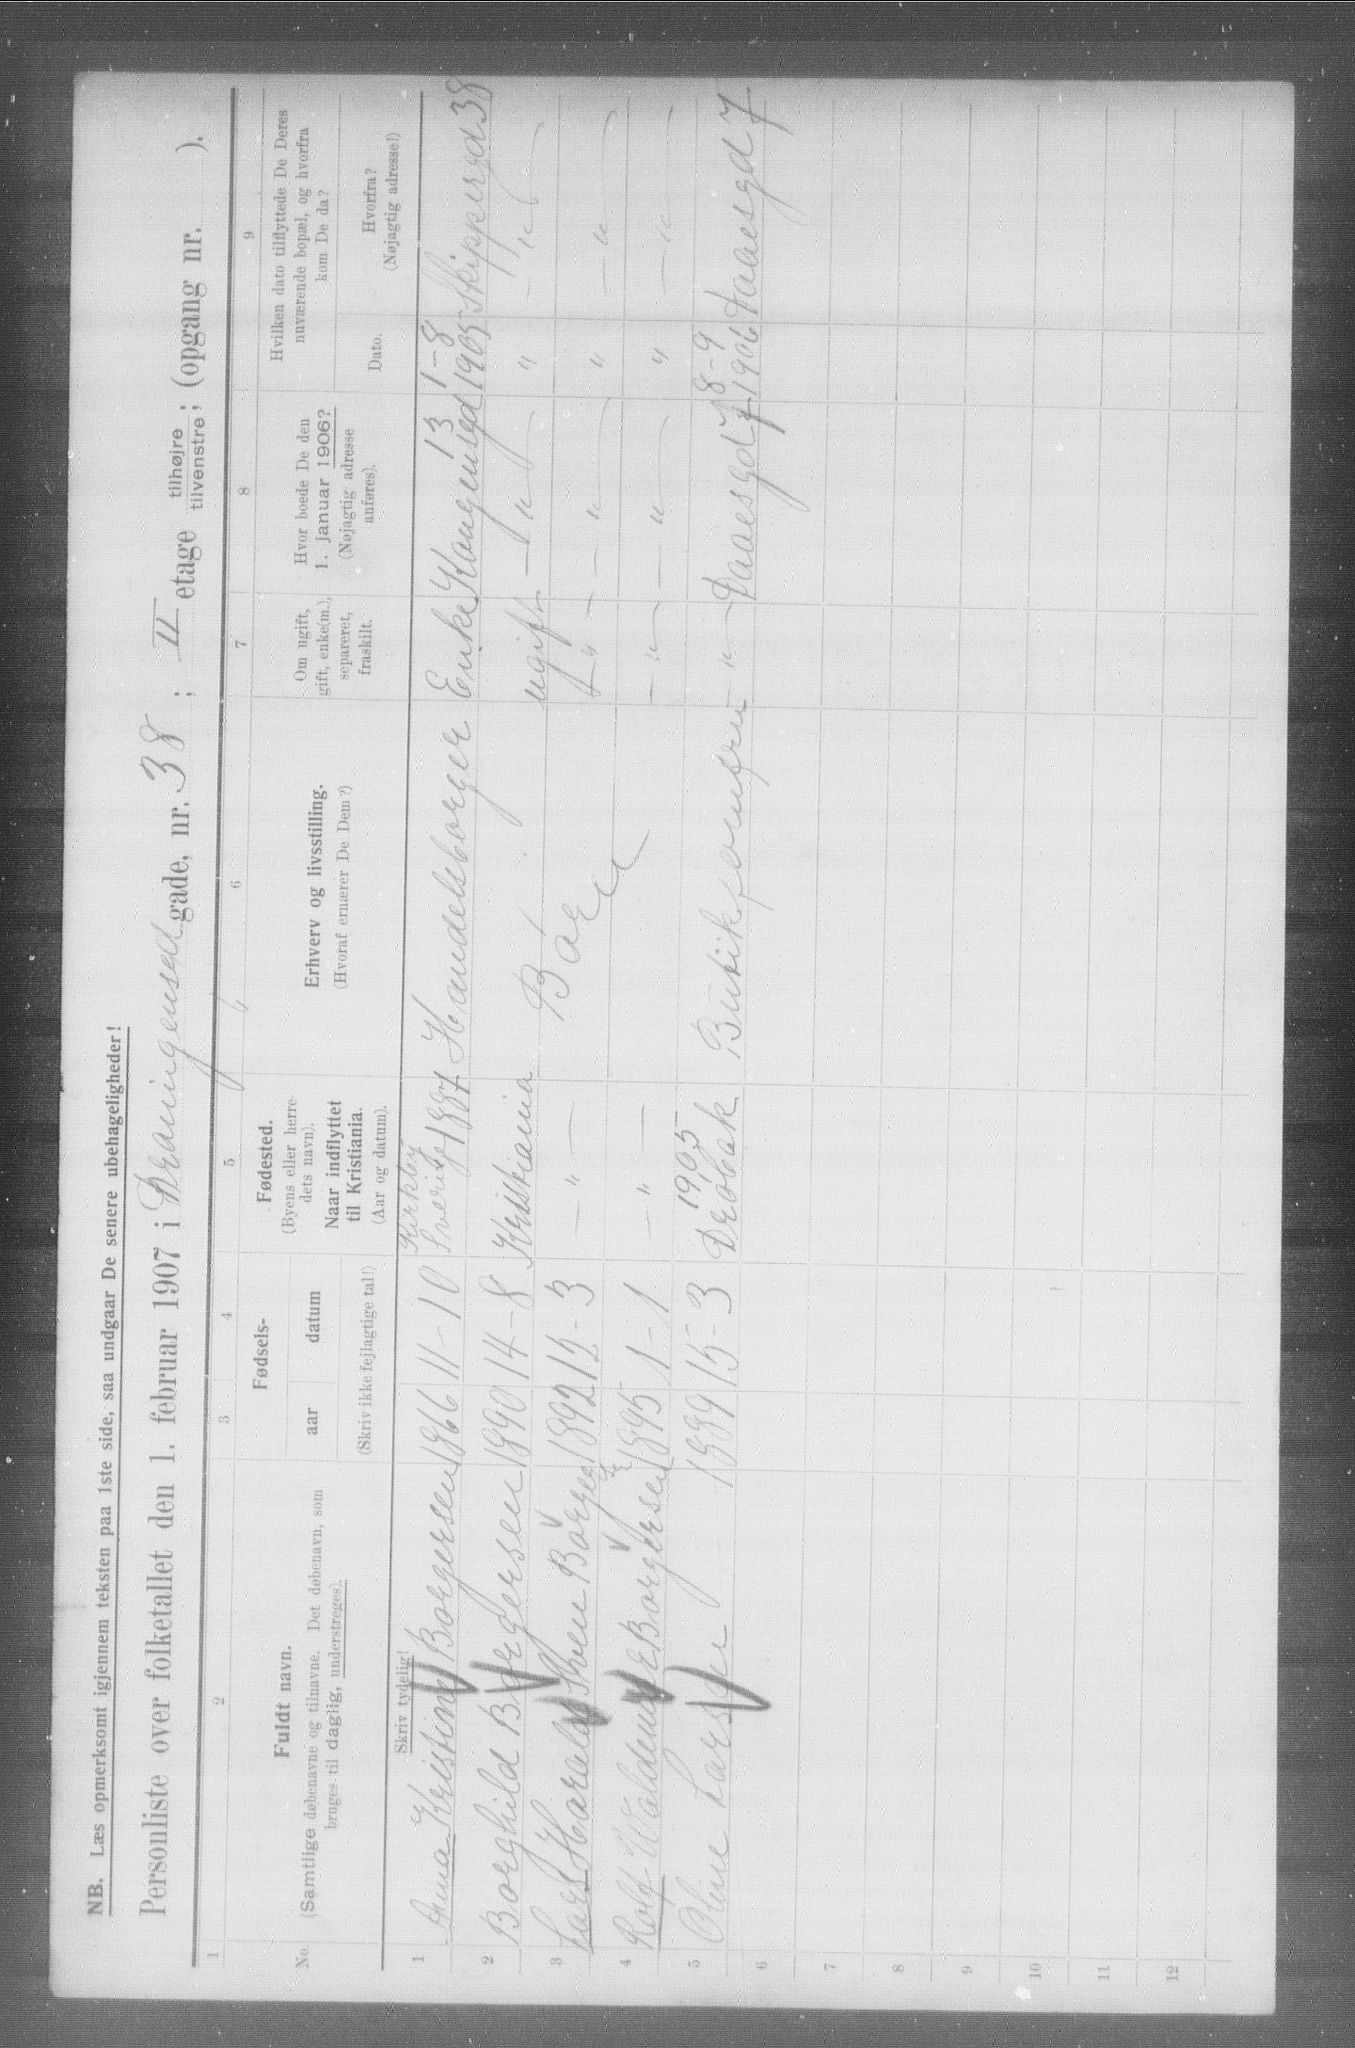 NB. Læs opmerksomt igjennem teksten paa 1ste side, saa undgaar De senere ubehageligheder!
Personliste over folketallet den 1. februar 1907 i gade, nr. 38; II etage tilhøjre tilvenstre; (opgang nr. ).
1 2 3 4 5 6 7 8 9
No.
Fuldt navn.
(Samtlige døbenavne og tilnavne. Det døbenavn, som
bruges til daglig, understreges).
Skriv tydelig!
Fødsels-
aar datum
(Skriv ikke fejlagtige tal!)
Fødested.
(Byens eller herre-
dets navn).
Naar indflyttet
til Kristiania.
(Aar og datum).
Erhverv og livsstilling.
(Hvoraf ernærer De Dem?)
Om ugift,
gift, enke(m.),
separeret,
fraskilt.
Hvor boede De den
1. januar 1906?
(Nøjagtig adresse
anføres).
Hvilken dato tilflyttede De Deres
nuværende bopæl, og hvorfra
kom De da?
Dato.
Hvorfra?
(Nøjagtig adresse!)
1 Anna Kristine Borgersen 1866 11-10 Sverige 1887 Handelsborger Enke 13 1-8 1905 Skippergd 38
2 Borghild Borgersen 1890 14-8 Kristiania Barn ugift — " — " — " —
3 Lars Harald Borgersen 1892 15-3 — " — — " — — " — " — " —
4 Rolf Waldemar Borgersen 1895 1-1 — " — — " — — " — " — " —
5 Oline Larsen 1889 15-3 1905 Drøbak Butikjomfru — " — Daaesgd 7 8-9 1906 Daaesgd 7
6
7
8
9
10
11
12